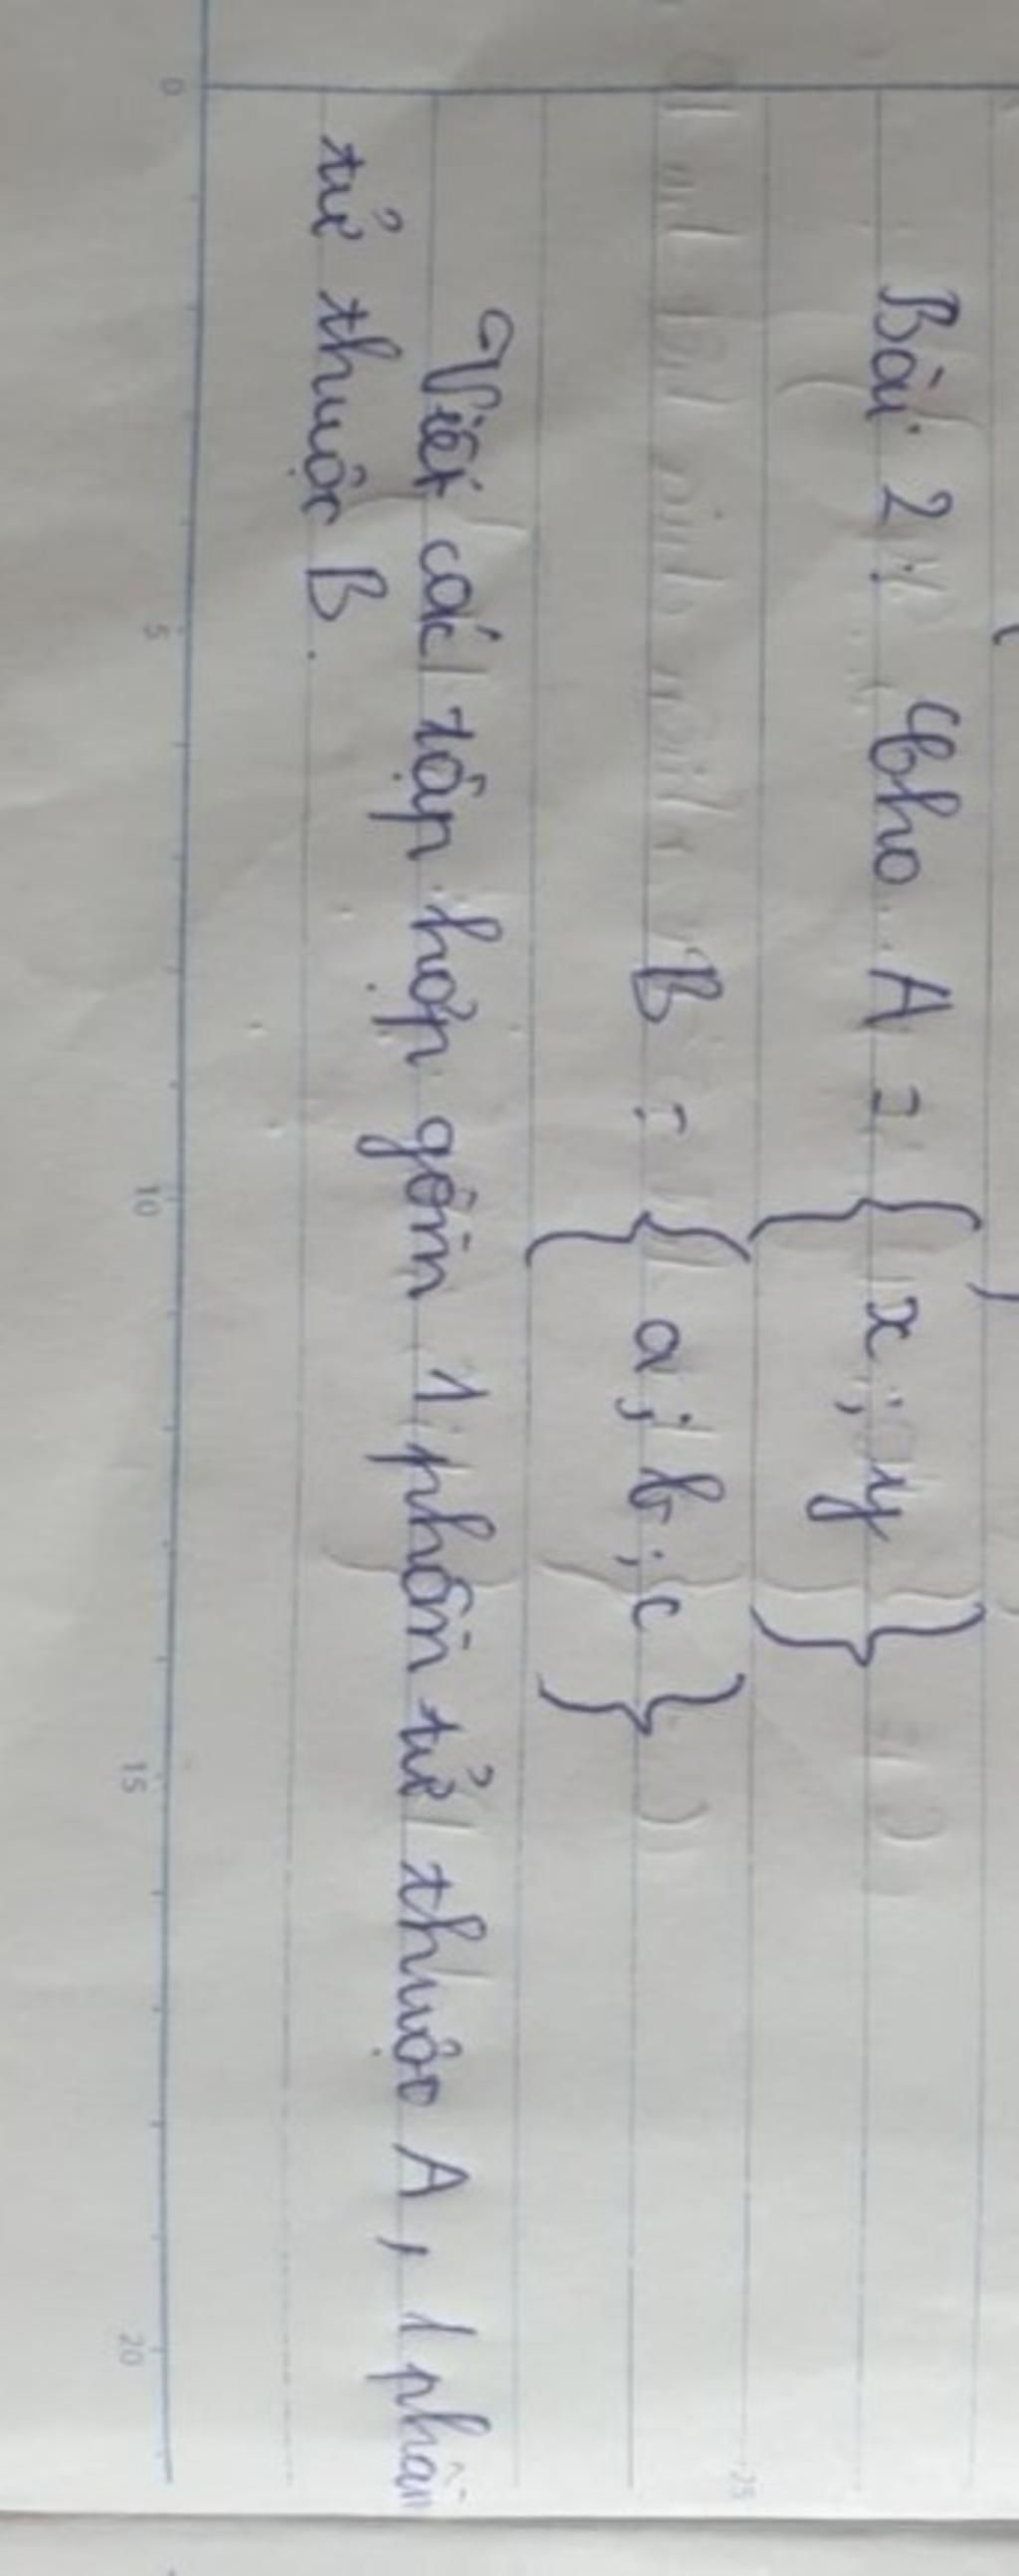 Bài 2: Cho A = { x ; y }
B = { a ; b ; c }
Viết các tập hợp gồm 1 phần tử thuộc A, 1 phần
tử thuộc B.
0 5 10 15 20
25